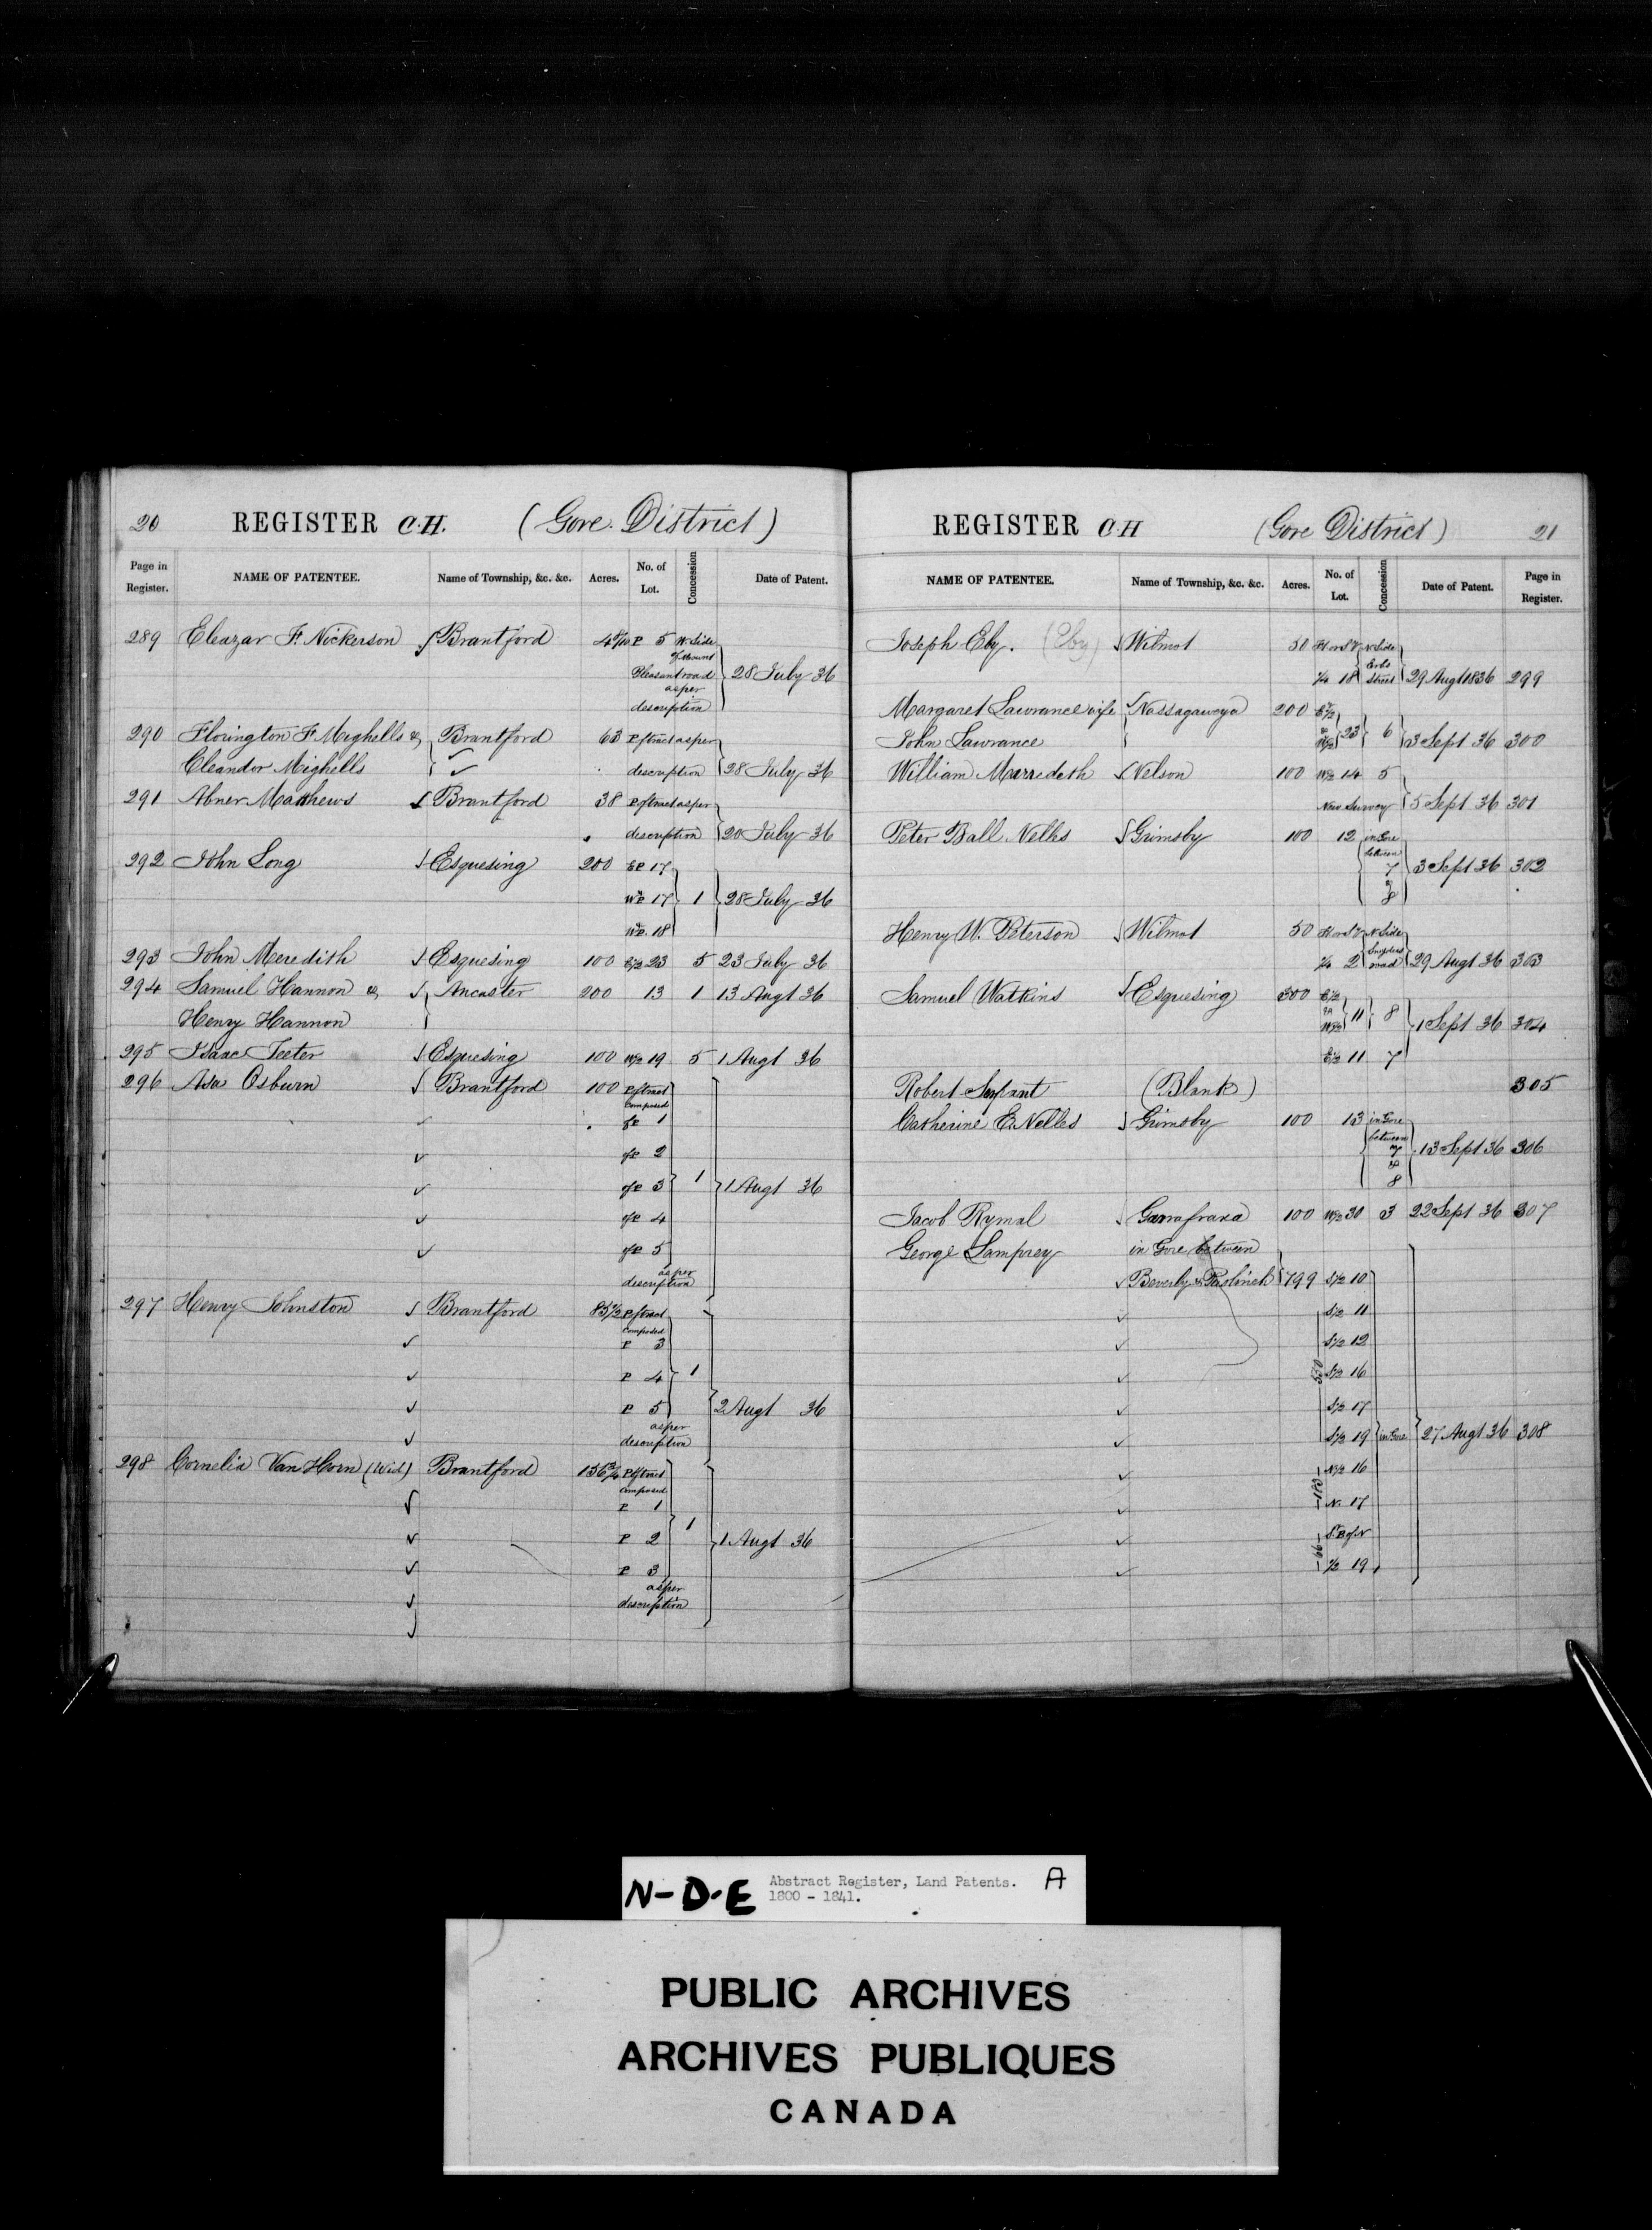 20 REGISTER C.H. (Gore District)
Page in Register. NAME OF PATENTEE. Name of Township, &c. &c. Acres. No. of Lot. Concession Date of Patent.
289 Eleazar F. Nickerson Brantford P 5 W. Side
of Mount
Pleasant road 28 July 36
as per
description
290 Florington F. Mighells & Brantford 63 P of tract as per
Eleandor Mighells description 28 July 36
291 Abner Matthews Brantford 38 P of tract as per
description 20 July 36
292 John Long Esquesing 200 EP 17
WP 17 1 28 July 36
WP. 18
293 John Meredith Esquesing 100 E1/2 23 5 23 July 36
294 Samuel Hannon & Ancaster 200 13 1 13 Augt 36
Henry Hannon
295 Isaac Teeter Esquesing 100 W1/2 19 5 1 Augt 36
296 Asa Osburn Brantford 100 P of tract
composed
of P 1
of P 2
of P 3 1 1 Augt 36
of P 4
of P 5
as per
description
297 Henry Johnston Brantford 85 1/2 P of tract
composed
P 3
P 4 1
P 5 2 Augt 36
as per
description
298 Cornelia Van Horn (Wid) Brantford 136 3/4 P of tract
composed
P 1
P 2 1 1 Augt 36
P 3
as per
description
REGISTER C H (Gore District) 21
NAME OF PATENTEE. Name of Township, &c. &c. Acres. No. of Lot. Concession Date of Patent. Page in Register.
Joseph Eby. (Eby) Wilmot 50 N Side
18 Erbs Street 29 Augt 1836 299
Margaret Lawrance wife Nassagaweya 200 E1/2
John Lawrance & W1/2 23 6 3 Sept 36 300
William Marredeth Nelson 100 W1/2 14 5
New Survey 5 Sept 36 301
Peter Ball Nelles Grimsby 100 12 in Gore
between
7 3 Sept 36 302
&
8
Henry W. Peterson Wilmot 50 N Side
2 road 29 Augt 36 303
Samuel Watkins Esquesing 300 E1/2
& W1/2 11 8 1 Sept 36 304
E1/2 11 7
Robert Servant (Blank) 305
Catherine E. Nelles Grimsby 100 13 in Gore
between
7 13 Sept 36 306
&
8
Jacob Rymal Garrafraxa 100 W1/2 30 3 22 Sept 36 307
George Lamprey in Gore between
Beverly & Puslinch 799 S1/2 10
S1/2 11
S1/2 12
S1/2 16
S1/2 17
S1/2 19 in Gore 27 Augt 36 308
N1/2 16
N. 17
S. P of N
1/2 19
N-D-E Abstract Register, Land Patents. A
1800 - 1841.
PUBLIC ARCHIVES
ARCHIVES PUBLIQUES
CANADA